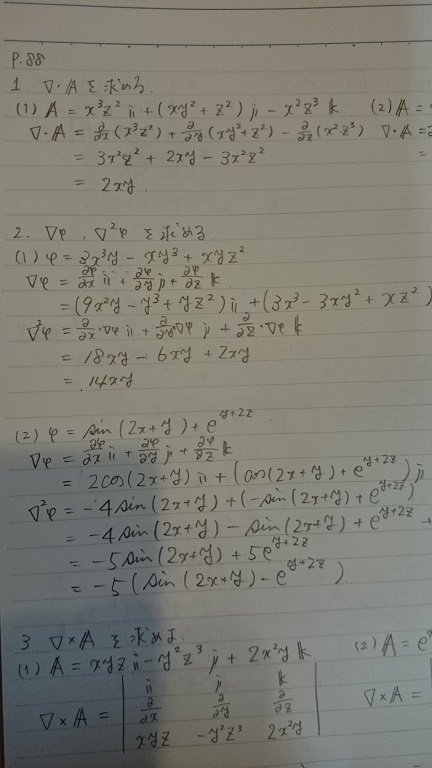 P.88
1 ∇·A を求める.
(1) A = x³z² i + (xy² + z²) j - x²z³ k (2) A =
∇·A = ∂/∂x (x³z²) + ∂/∂y (xy² + z²) - ∂/∂z (x²z³) ∇·A =
= 3x²z² + 2xy - 3x²z² =
= 2xy.
2. ∇φ, ∇²φ を求める
(1) φ = 3x³y - xy³ + xyz²
∇φ = ∂φ/∂x i + ∂φ/∂y j + ∂φ/∂z k
= (9x²y - y³ + yz²) i + (3x³ - 3xy² + xz²)
∇²φ = ∂/∂x·∇φ i + ∂/∂y ∇φ j + ∂/∂z·∇φ k
= 18xy - 6xy + 2xy
= 14xy
(2) φ = sin(2x+y) + e^{y+2z}
∇φ = ∂φ/∂x i + ∂φ/∂y j + ∂φ/∂z k
= 2cos(2x+y) i + (cos(2x+y) + e^{y+2z}) j
∇²φ = -4sin(2x+y) + (-sin(2x+y) + e^{y+2z})
= -4sin(2x+y) - sin(2x+y) + e^{y+2z} +
= -5sin(2x+y) + 5e^{y+2z}
= -5(sin(2x+y) - e^{y+2z})
3. ∇×A を求めよ.
(1) A = xyz i - y²z³ j + 2x²y k (2) A = e
∇×A = | i j k |
| ∂/∂x ∂/∂y ∂/∂z | ∇×A =
| xyz -y²z³ 2x²y |